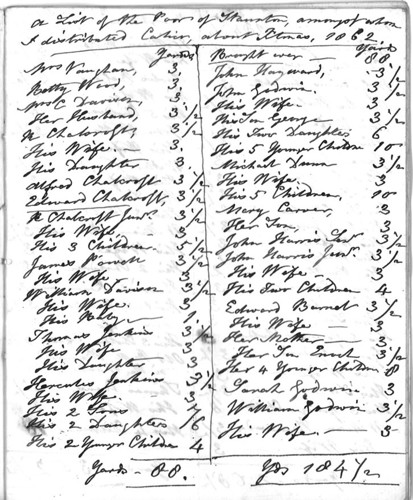 A List of the Poor of Staunton, amongst whom
I distributed Calico, about Xtmas, 1862
Yards
Mrs Vaughan, 3
Betty Wood, 3
Mrs C Davison, 3
Her Husband, 3 1/2
R Chalcroft, 3 1/2
His Wife 3
His Daughter 3
Alfred Chalcroft 3 1/2
Edward Chalcroft, 3 1/2
R Chalcroft Junr. 3 1/2
His Wife 3
His 3 Children 5 1/2
James 3 1/2
His Wife 3
William Davison 3 1/2
His Wife 3
His Baby 1
Thomas Jenkins 3 1/2
His Wife 3
His Daughter 3
Hercules Jenkins 3 1/2
His Wife 3
His 2 Sons 7
His 2 Daughters 6
His 2 Younger Children 4
Yards - 88.
Yards
Brought over 88
John Hayward, 3 1/2
John Godwin 3 1/2
His Wife 3
His Son George 3 1/2
His Two Daughters 6
His 5 Younger Children 10
Michael Dunn 3 1/2
His Wife 3
His 5 Children, 10
Mary Carver, 3
Her Son, 3
John Harris Senr. 3 1/2
John Harris Junr. 3 1/2
His Wife 3
His Two Children 4
Edward Barnet 3 1/2
His Wife 3
Her Mother 3
Her Son Enoch 3 1/2
Her 4 Younger Children 8
Sarah Godwin 3
William Godwin 3 1/2
His Wife 3
Yds 184 1/2